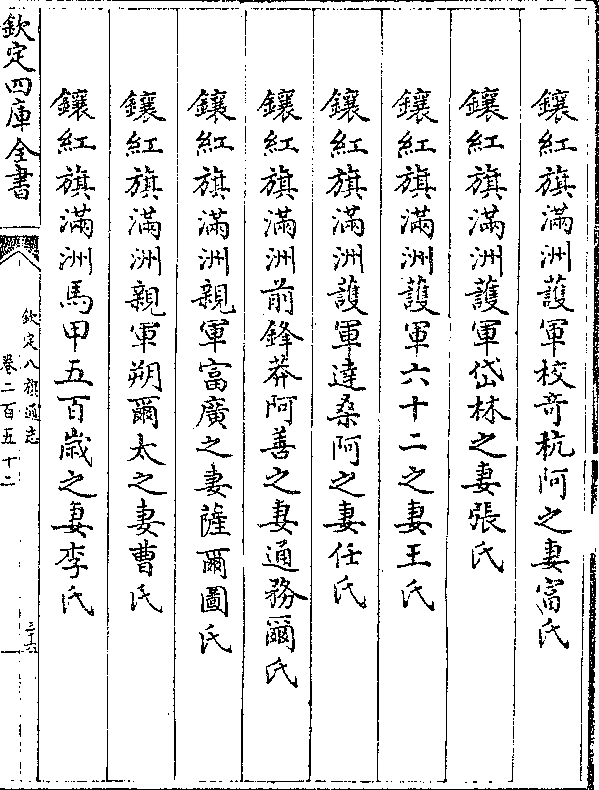 鑲紅旗滿洲護軍校竒杭阿之妻富氏
鑲紅旗滿洲護軍岱林之妻張氏
鑲紅旗滿洲護軍六十二之妻王氏
鑲紅旗滿洲護軍達桑阿之妻任氏
鑲紅旗滿洲前鋒莽阿善之妻通務爾氏
鑲紅旗滿洲親軍富廣之妻薩爾圖氏
鑲紅旗滿洲親軍朔爾太之妻曹氏
鑲紅旗滿洲馬甲五百歲之妻李氏
欽定四庫全書
欽定八旗通志
卷二百五十二
三十六